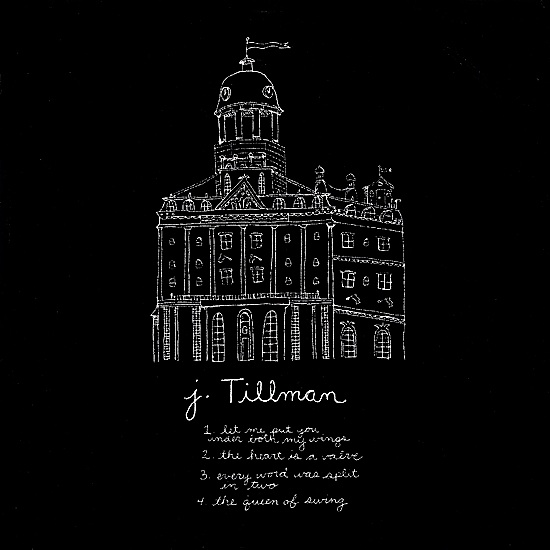 j. Tillman
1. let me put you
under both my wings
2. the heart is a valve
3. every word was split
in two
4. the queen of swing